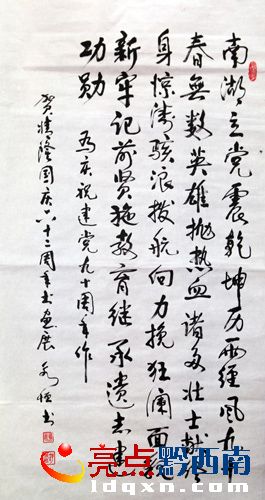 南湖立党震乾坤历雨经風九十
春無數英雄抛热血諸多壮士献
身惊涛骇浪拨航向力挽狂澜面貌
新牢记前贤施教育继承遗志建
功勋 为庆祝建党九十周年作
隆国庆六十二周年书画展 书
亮点黔西南
ldqxn.com